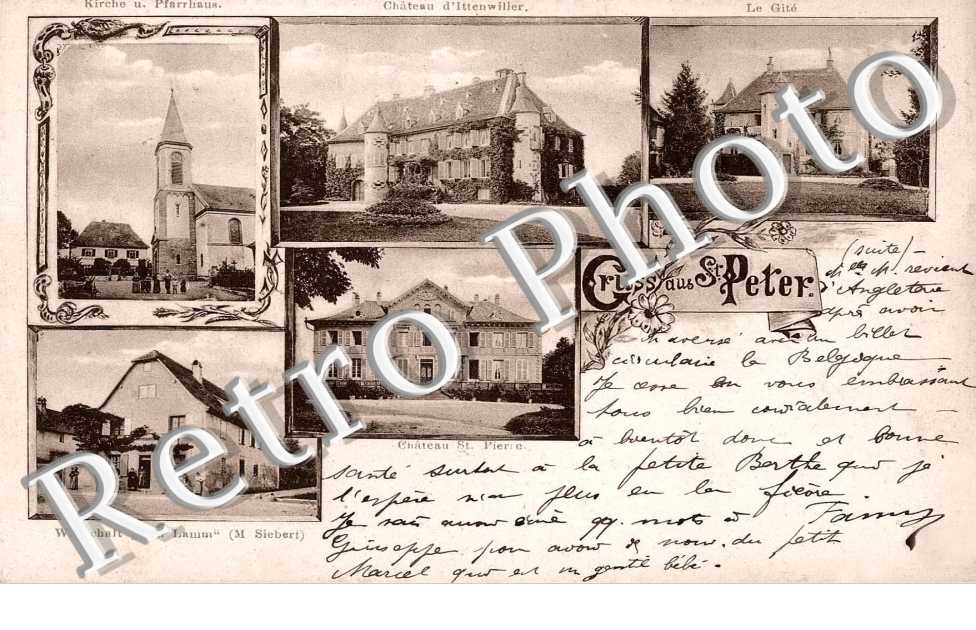 Kirche u. Pfarrhaus.
Château d'Ittenwiller.
Le Gité
Gruss aus St. Peter.
Château St. Pierre.
Lamm" (M Siebert)
Retro Photo
(suite) -
revient
d'Angleterre
après avoir
traversé avec un billet
circulaire la Belgique
Je cesse en vous embrassant
tous bien cordialement -
à bientôt donc et bonne
santé surtout à la petite Berthe qui je
l'espère n'a plus eu la fièvre.
Je vais aussi écrire qq. mots à Fanny
Giuseppe pour avoir de nouv. du petit
Marcel qui est un gentil bébé.